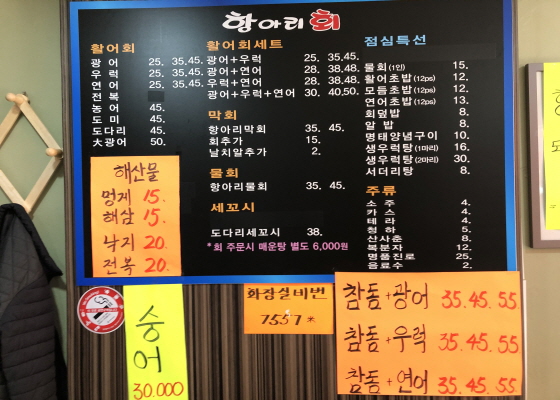 항아리회
활어회
광 어 25. 35. 45.
우 럭 25. 35. 45.
연 어 25. 35. 45.
전 복
농 어 45.
도 미 45.
도다리 45.
大광어 50.
활어회세트
광어+우럭 25. 35. 45.
광어+연어 28. 38. 48.
우럭+연어 28. 38. 48.
광어+우럭+연어 30. 40. 50.
막회
항아리막회 35. 45.
회추가 15.
날치알추가 2.
물회
항아리물회 35. 45.
세꼬시
도다리세꼬시 38.
*회 주문시 매운탕 별도 6,000원
점심특선
물회(1인) 15.
활어초밥(12ps) 12.
모듬초밥(12ps) 12.
연어초밥(12ps) 13.
회덮밥 8.
알 밥 8.
명태양념구이 10.
생우럭탕(1마리) 16.
생우럭탕(2마리) 30.
서더리탕 8.
주류
소 주 4.
카 스 4.
테 라 4.
청 하 5.
산사춘 8.
복분자 12.
명품진로 25.
음료수 2.
해산물
멍게 15.
해삼 15.
낙지 20.
전복 20.
숭어
30.000
화장실비번
7557 *
참돔+광어 35. 45. 55
참돔+우럭 35. 45. 55
참돔+연어 35. 45. 55